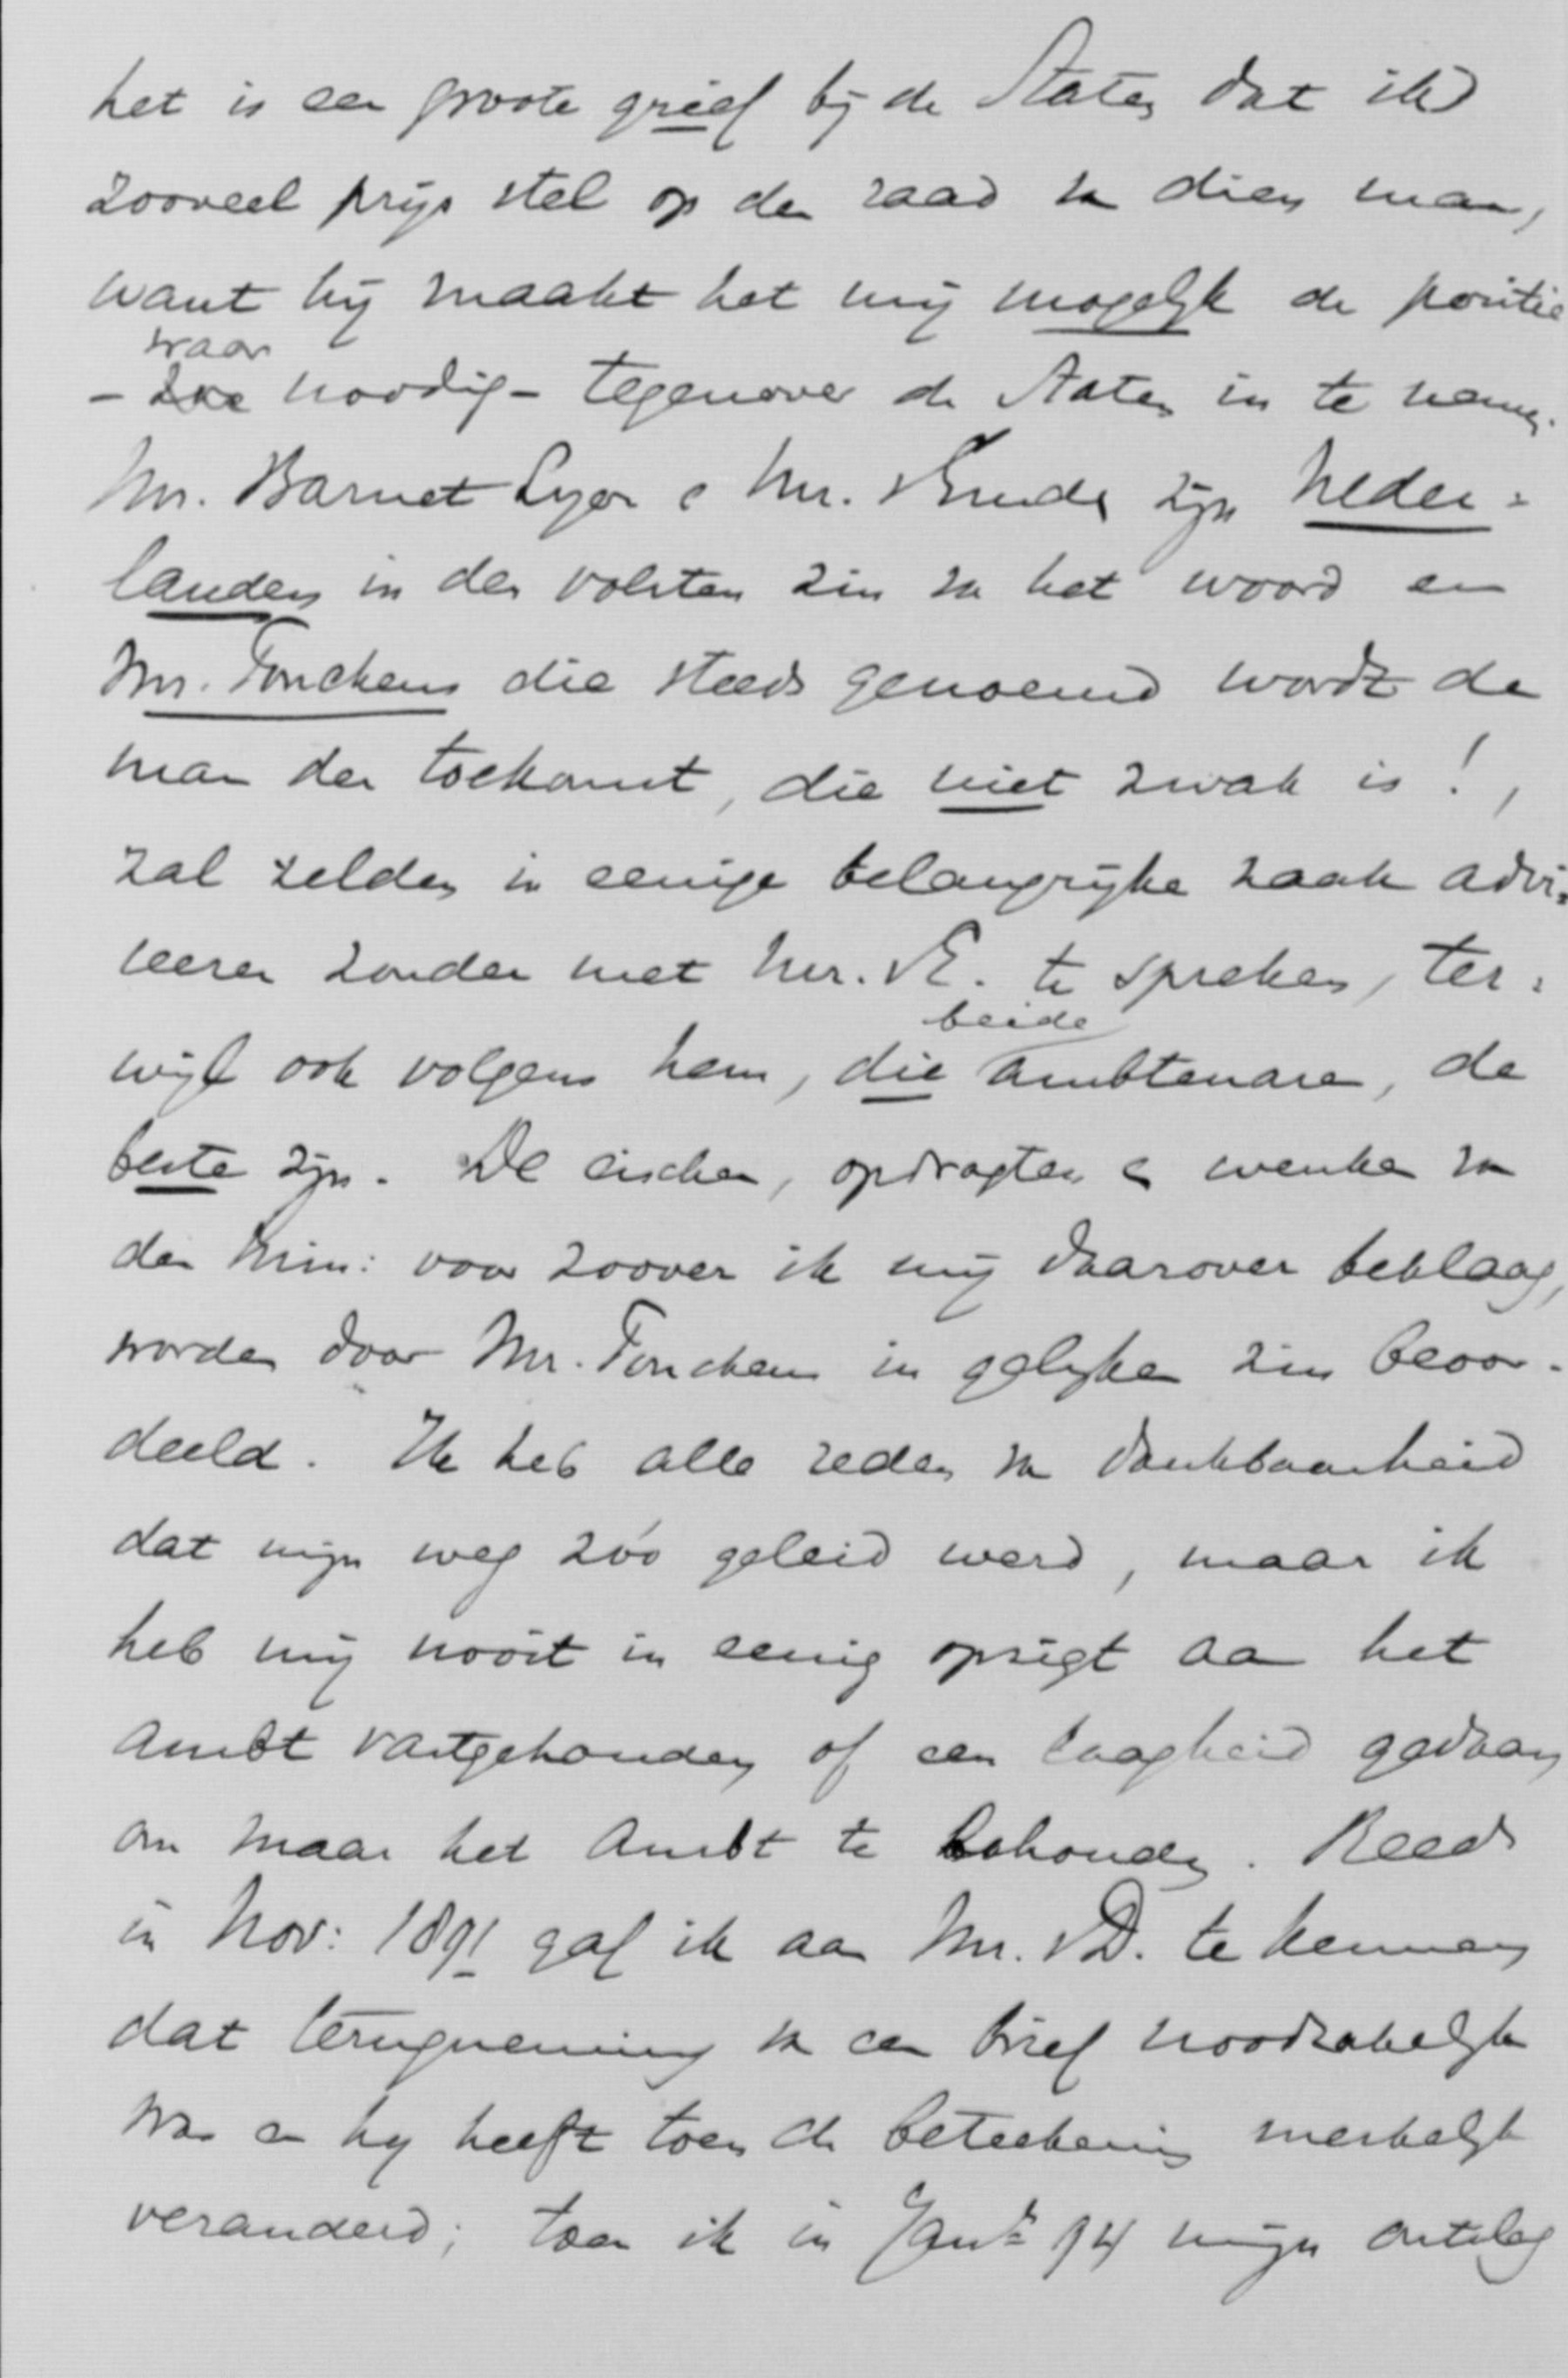 het is een groote grief bij de Staten dat ik
zooveel prijs stel op den raad van dien man,
want hij maakt het mij mogelijk de positie
waar
- zoo noodig - tegenover de Staten in te nemen.
Mr. Barnet Lyon & Mr. v Emde zijn Neder=
landers in den volsten zin van het woord en
Mr. Tonckens die steeds genoemd wordt de
man der toekomst, die niet zwak is!,
zal zelden in eenige belangrijke zaak advi=
seeren zonder met Mr. vE. te spreken, ter=
beide
wijl ook volgens hem, die ambtenaren, de
beste zijn. De eischen, opdragten & wenken van
den Min: voor zoover ik mij daarover beklaag,
worden door Mr. Tonckens in gelijken zin beoor-
deeld. Ik heb alle reden van dankbaarheid
dat mijn weg zóó geleid werd, maar ik
heb mij nooit in eenig opzigt aan het
ambt vastgehouden of een laagheid gedaan
om maar het ambt te behouden. Reeds
in Nov: 1891 gaf ik aan Mr. vD. te kennen
dat terugneming van een brief noodzakelijk
was en hij heeft toen de beteekenis merkelijk
veranderd; toen ik in Jan. 94 mijn ontslag